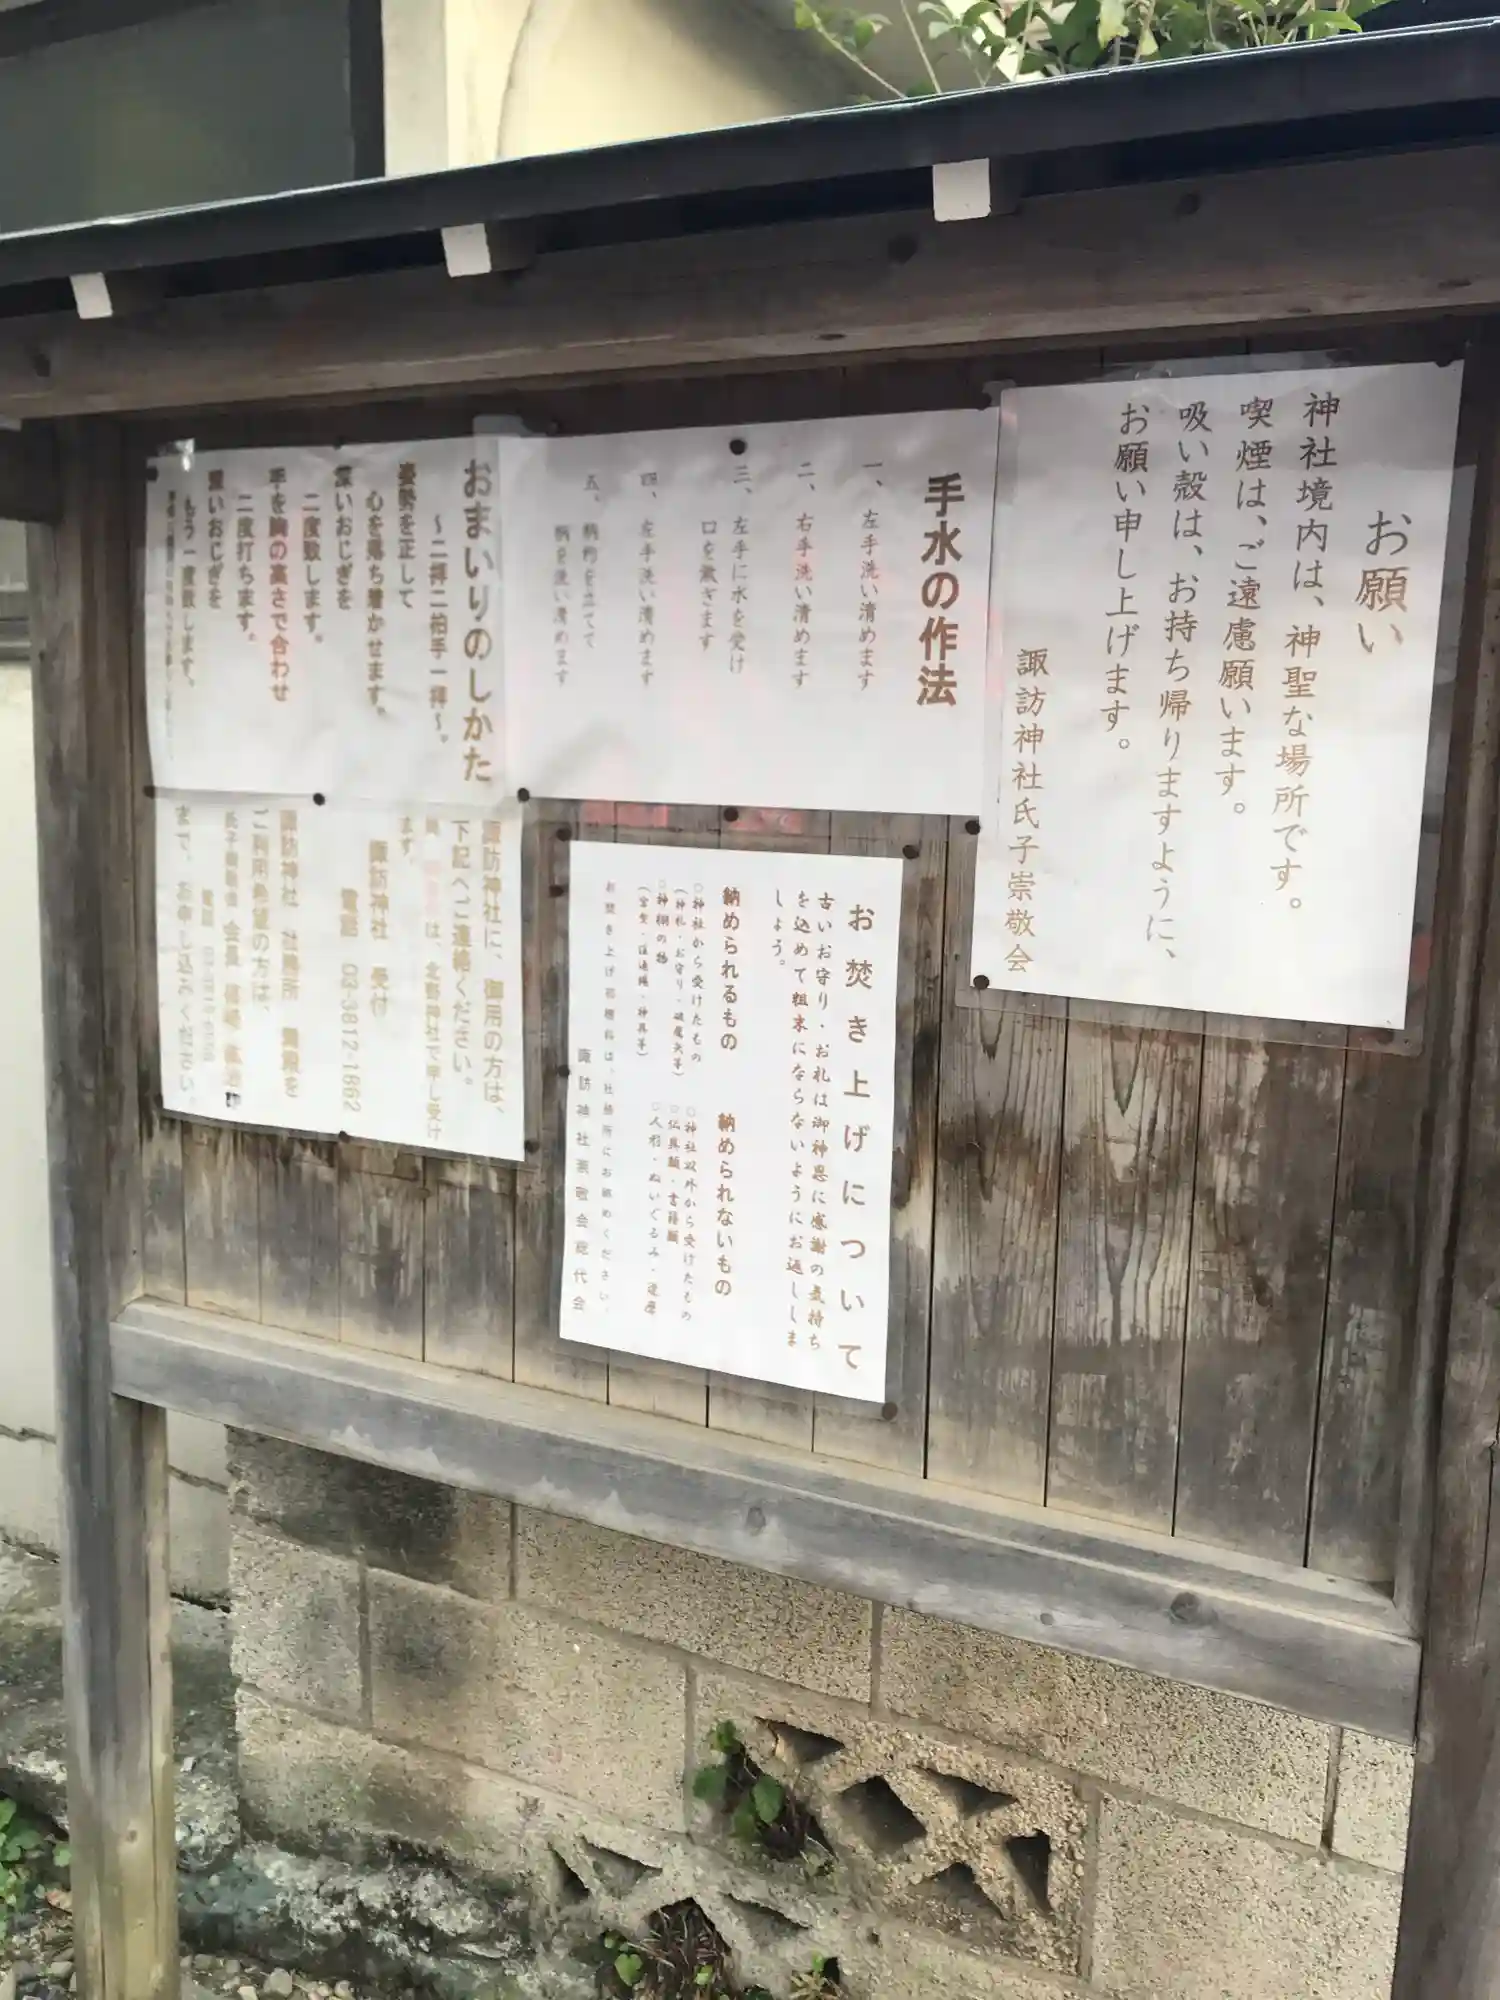 お願い
神社境内は、神聖な場所です。
喫煙は、ご遠慮願います。
吸い殻は、お持ち帰りますように、
お願い申し上げます。
諏訪神社氏子崇敬会
手水の作法
一、左手洗い清めます
二、右手洗い清めます
三、左手に水を受け
口を漱ぎます
四、左手洗い清めます
五、柄杓を立てて
柄を洗い清めます
おまいりのしかた
〜二拝二拍手一拝〜。
姿勢を正して
心を落ち着かせます。
深いおじぎを
二度致します。
手を胸の高さで合わせ
二度打ちます。
深いおじぎを
もう一度致します。
お焚き上げについて
古いお守り・お札は御神恩に感謝の気持ち
を込めて粗末にならないようにお返ししま
しょう。
納められるもの
○神社から受けたもの
(神札・お守り・破魔矢等)
○神棚の物
(宮型・注連縄・神具等)
納められないもの
○神社以外から受けたもの
○仏具類・書籍類
○人形・ぬいぐるみ・達磨
お焚き上げ初穂料は、社務所にお納めください。
諏訪神社崇敬会総代会
諏訪神社に、御用の方は、
下記へご連絡ください。
は、北野神社で申し受け
ます。
諏訪神社 受付
電話 03-3812-1862
諏訪神社 社務所
ご利用希望の方は、
会長
電話
まで、お申し込みください。